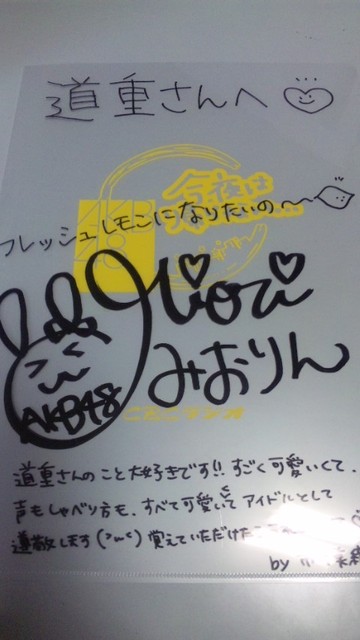 道重さんへ
今夜は
フレッシュレモンになりたいの〜
Miori
みおりん
AKB48
道重さんのこと大好きです!!すごく可愛いくて、
声もしゃべり方も、すべて可愛いくてアイドルとして
尊敬します(>ω<)覚えていただけた
by